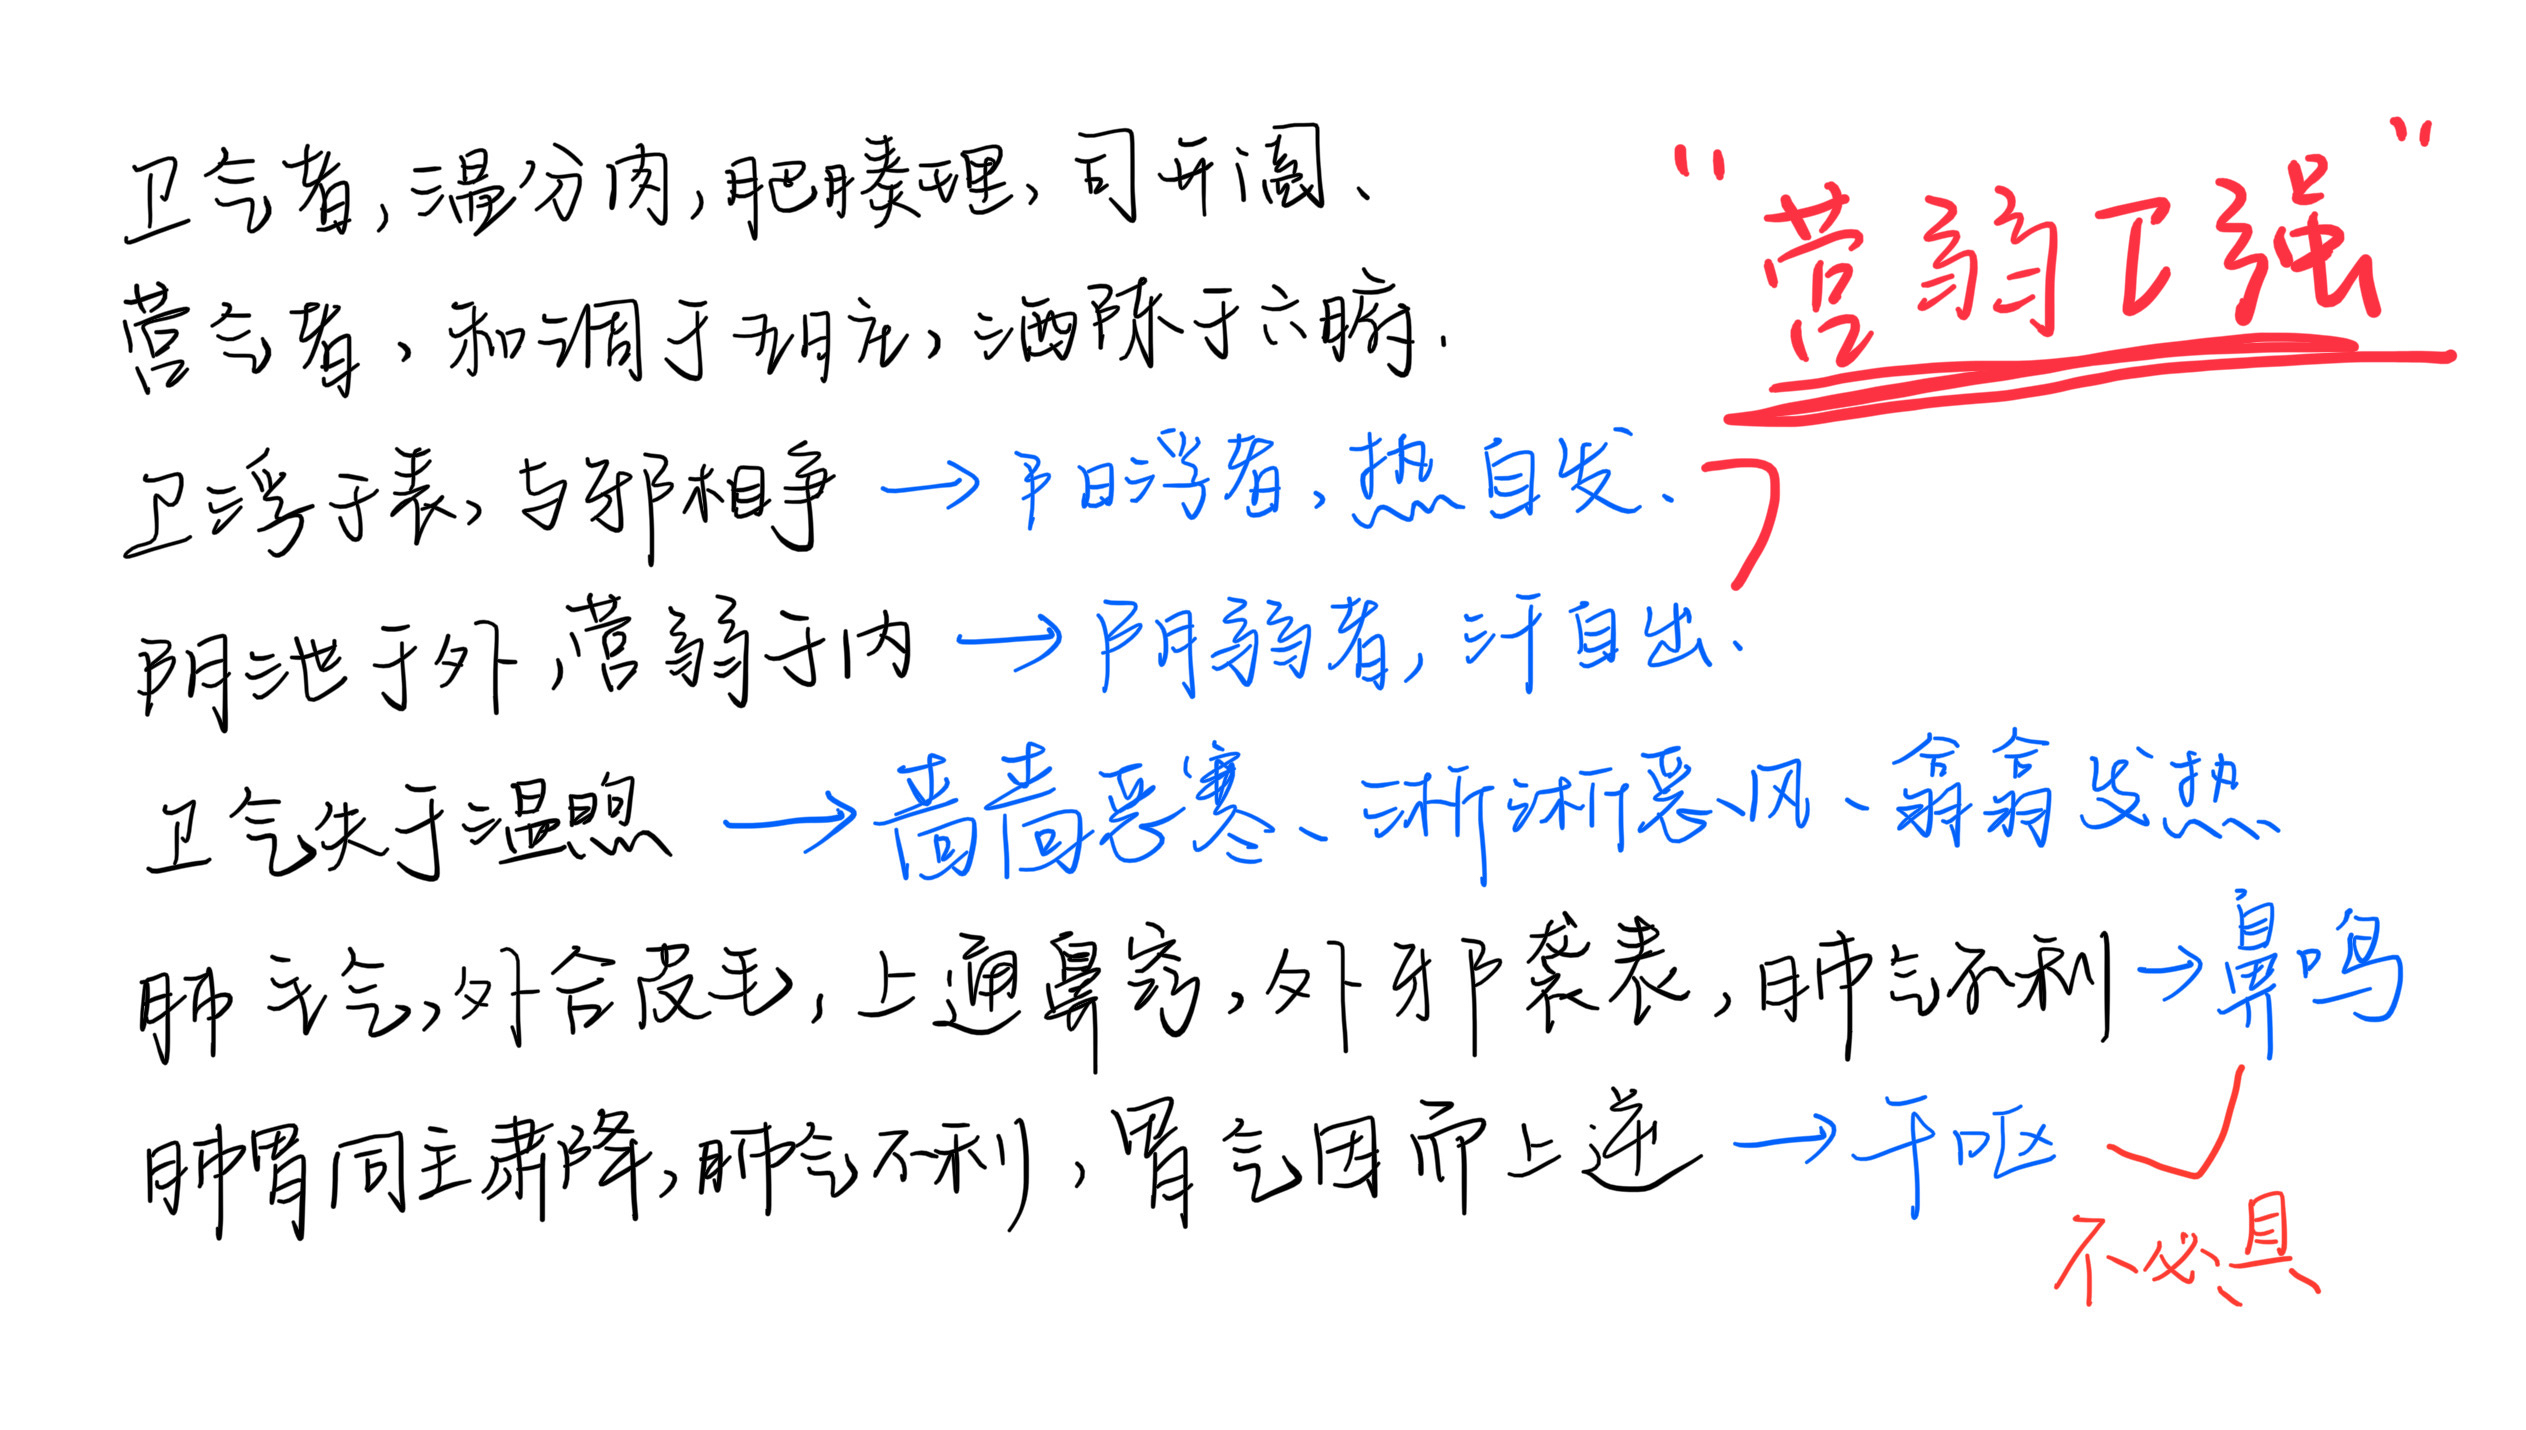 卫气者,温分肉,肥腠理,司开阖、
营气者,和调于五脏,洒陈于六腑.
"营弱卫强"
卫浮于表,与邪相争→阳浮者,热自发、
阴泄于外,营弱于内→阴弱者,汗自出、
卫气失于温煦→啬啬恶寒、淅淅恶风、翕翕发热
肺主气,外合皮毛,上通鼻窍,外邪袭表,肺气不利→鼻鸣
肺胃同主肃降,肺气不利,胃气因而上逆→干呕
不必具